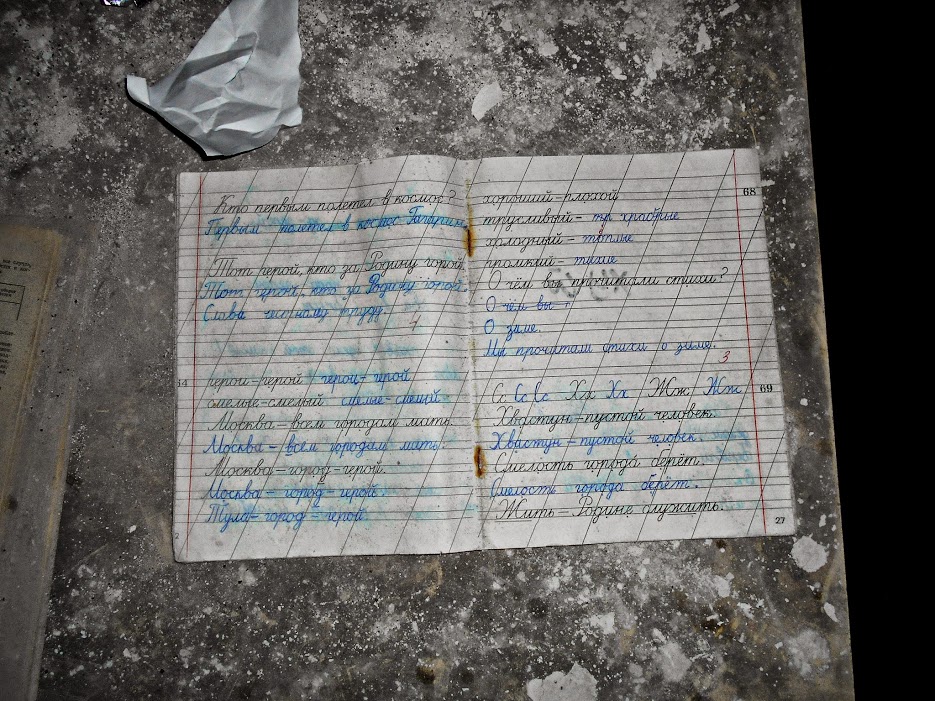 Кто первым полетел в космос?
Первым полетел в космос Гагарин.
Тот герой, кто за Родину горой.
Тот герой, кто за Родину горой.
Слава честному труду.
4
64
герои-герой герои-герой
смелые-смелый смелые-смелый
Москва-всем городам мать.
Москва-всем городам мать.
Москва-город-герой.
Москва-город-герой.
Тула-город-герой.
68
хороший-плохой
трусливый- храбрые
холодный- тёплые
громкий- тихие
О чём вы прочитали стихи?
О чём вы
О зиме.
Мы прочитали стихи о зиме.
3
Сс Сс Сс Хх Хх Жж Жж 69
Хвастун-пустой человек.
Хвастун-пустой человек.
Смелость города берёт.
Смелость города берёт.
Жить-Родине служить.
27